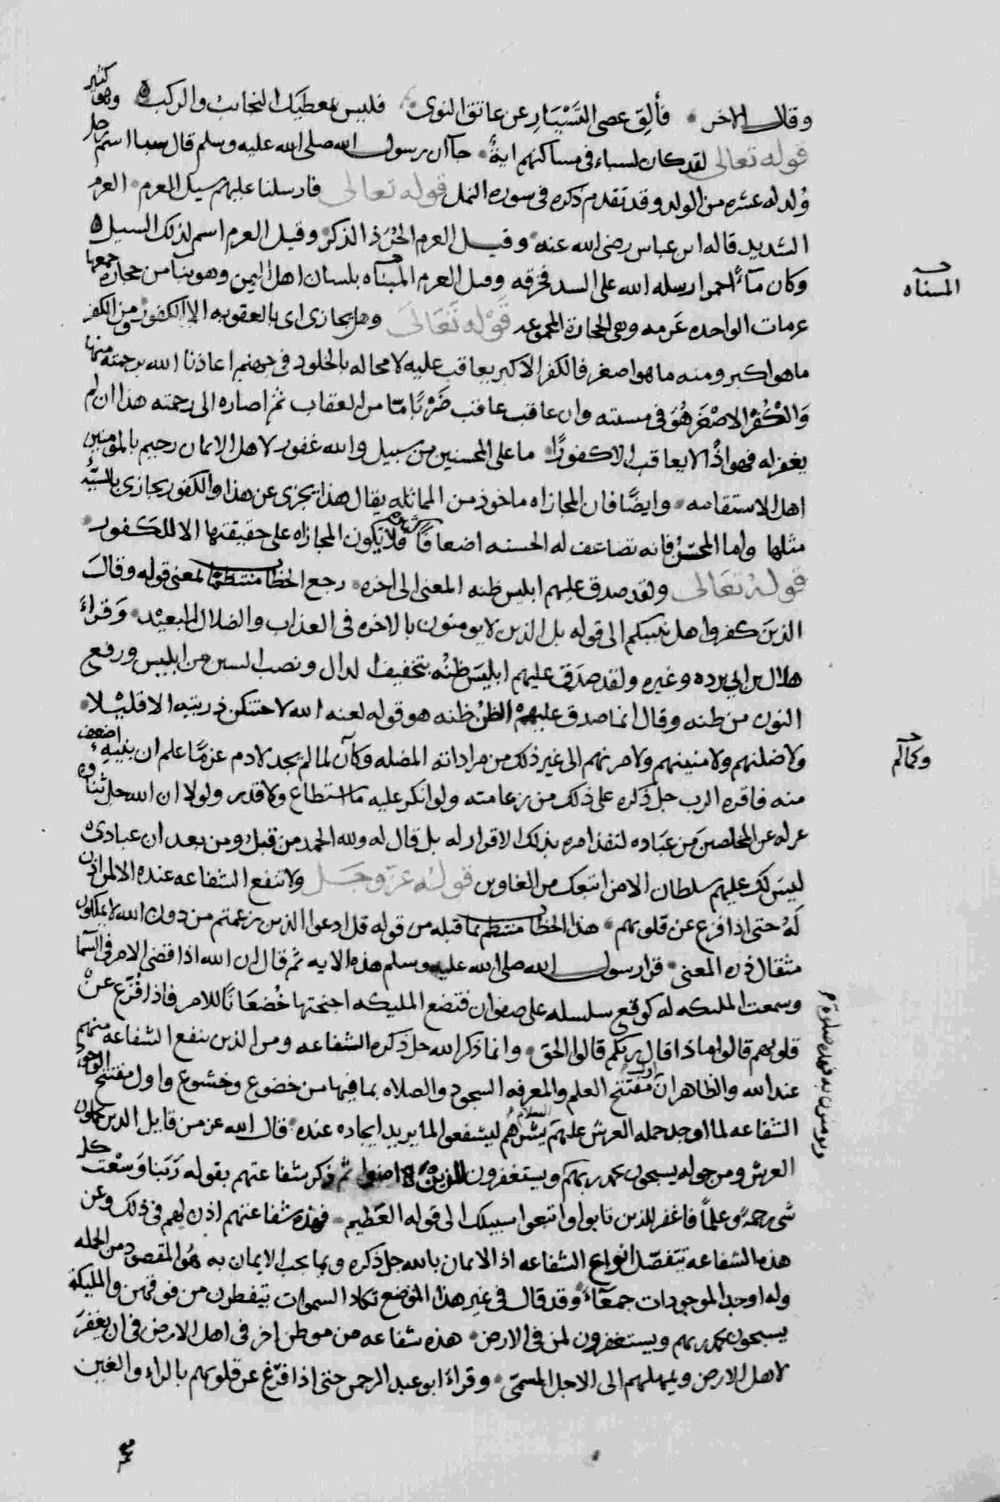 وقال الاخر فألق عصى التسيار عن عاتق النوى فليس لمعطيك النجائب والركب وهو كثير
قوله تعالى لقد كان لسباء في مساكنهم اية جاآن رسول الله صلى الله عليه وسلم قال سبا اسم رجل
ولد له عشره من الولد وقد تقدم ذكره في سوره النمل قوله تعالى فارسلنا عليهم سيل العرم العرم
الشديد قاله ابن عباس رضى الله عنه وقيل العرم الجرذ الذكر وقيل العرم اسم لذلك السيل
وكان مآءً احمر ارسله الله على السد فخرقه وقيل العرم المسناه بلسان اهل اليمن وهو بنا من حجاره جمعها
عرمات الواحده عرمه وهى الحجارة المجموعه قوله تعالى وهل يجازى اى بالعقوبه الا الكفور ومن الكفر
ما هو اكبر ومنه ما هو اصغر فالكفر الاكبر يعاقب عليه لا محاله بالخلود في جهنم اعاذنا الله برحمته منها
والكفر الاصغر هو في مسيته وان عاقب عاقب ضربًا مّا من العقاب ثم اصاره الى رحمته هذا ان لم
يغفر له فهو اذًا لا يعاقب الا كفورًا ما على المحسنين من سبيل والله غفور لاهل الايمان رحيم بالمؤمنين
اهل الاستقامه وايضًا فان المجازاه ماخوذ من المماثله يقال هذا يجزى عن هذا والكفور يجازى بالسيئه
مثلها واما المحسن فانه تضاعف له الحسنه اضعافًا فلا يكون المجازاه على حقيقتها الا للكفور
قوله تعالى ولقد صدق عليهم ابليس ظنه المعنى الى اخره رجع الخطاب منتظمًا لمعنى قوله وقال
الذين كفروا هل ننبيكم الى قوله بل الذين لا يومنون بالاخره في العذاب والضلال البعيد وقراءَ
هلال بن ابي برده وغيره ولقد صدق عليهم ابليسَ ظنُه بتخفيف الدال ونصب السين من ابليس ورفع
النون من ظنه وقال انما صدق عليهم الظن ظنه هو قوله لعنه الله لاحتنكن ذريته الا قليلا
ولاضلنهم ولامنينهم ولامرنهم الى غير ذلك من مراداته المضله وكان لما لم يجد لادم عزمًا علم ان بنيه اضعف
منه فاقره الرب جل ذكره على ذلك من زعامته ولو انكر عليه ما استطاع ولا قدر ولولا ان الله جل ثناوه
عزله عن المخلصين من عباده لنفذ امره بذلك الاقرار له بل قال له ولله الحمد من قبل ومن بعد ان عبادى
ليس لك عليهم سلطان الا من اتبعك من الغاوين قوله عز وجل ولا تنفع الشفاعه عنده الا لمن اذن
لَهُ حتى اذا فزع عن قلوبهم هذا الخطاب منتظم بما قبله من قوله قل ادعوا الذين زعمتم من دون الله لا يملكون
مثقال ذره المعنى قرا رسول الله صلى الله عليه وسلم هذه الايه ثم قال ان الله اذا قضى الامر في السما
وسمعت المليكه له كوقع سلسله على صفوان فتضع المليكه اجنحتها خضعانًا للامر فاذا فزع عن
قلوبهم قالوا ماذا قال ربكم قالوا الحق وانما ذكر الله جل ذكره الشفاعه ومن الذين ينفع الشفاعه منهم
عند الله والظاهر ان مفتتح العلم والمعرفه السجود والصلاه بما فيها من خضوع وخشوع واول مفتتح
الشفاعه لما اوجد حمله العرش عليهم السلام يشرهم ليشفعوا لما يريد ايجاده عنده قال الله عز من قايل الذين يحملون
العرش ومن حوله يسبحون بحمد ربهم ويستغفرون للذين امنوا ثم ذكر شفاعتهم بقوله ربنا وسعت كل
شى رحمةً وعلمًا فاغفر للذين تابوا واتبعوا سبيلك الى قوله العظيم فهذه شفاعتهم اذن لهم في ذلك وعن
هذه الشفاعه تتفصّل انواع الشفاعه اذ الايمان بالله جل ذكره وبما يجب الايمان به هو المقصود من الجمله
وله اوجد الموجودات جمعآء وقد قال في غير هذا الموضع تكاد السموات يتفطرن من فوقهن والمليكة
يسبحون بحمد ربهم ويستغفرون لمن في الارض هذه شفاعه من موطن اخر في اهل الارض في ان يغفر
لاهل الارض ويمهلهم الى الاجل المسمّى وقراءَ ابو عبد الرحمن حتى اذا فرّغ عن قلوبهم بالراء والغين
المسناه
وكما لم
ويومنون به فهذه صلوتهم